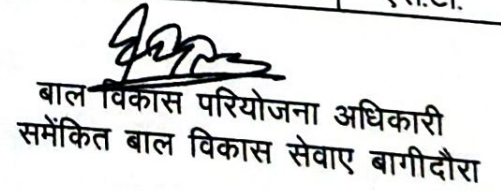 बाल विकास परियोजना अधिकारी
समेंकित बाल विकास सेवाए बागीदौरा